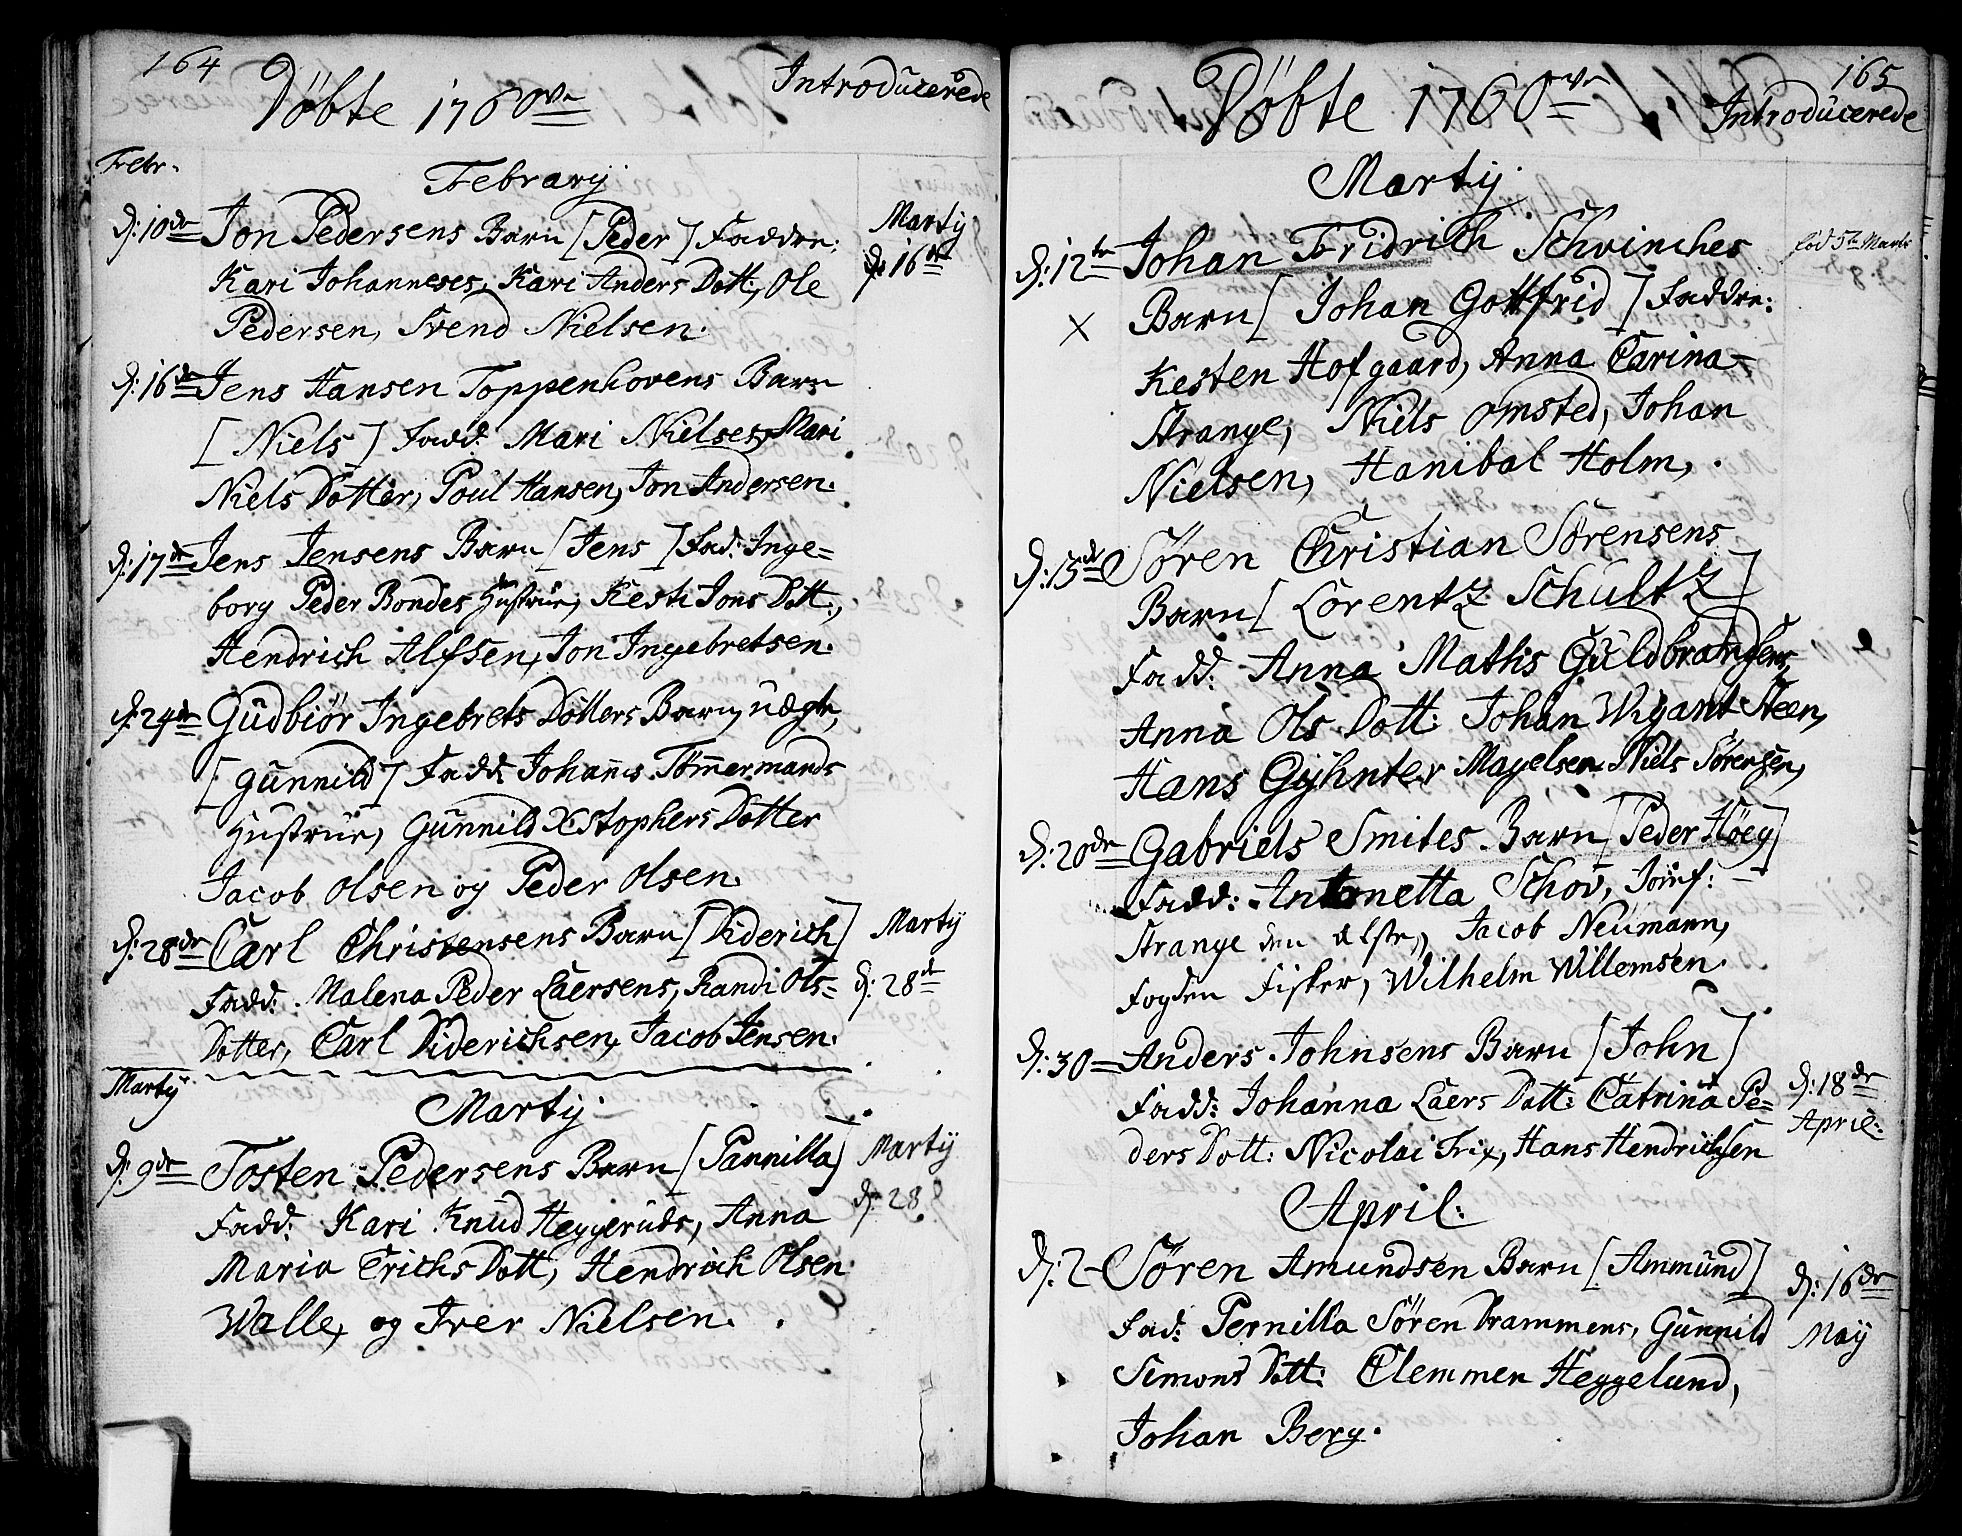 164
Döbte 1760ve
Introducerede
Febr.
Februarij
d: 10de Jon Pedersens Barn [Peder] Faddre:
Kari Johanneses, Kari Anders Dott:, Ole
Pedersen, Svend Nielsen.
Martij
d: 16de
d: 16de Jens Hansen Toppenhovens Barn
[Niels] Fadd: Mari Nielses, Mari
Niels Dotter, Poul Hansen, Jon Andersen.
d: 17de Jens Jensens Barn [Jens] Fad: Inge=
borg Peder Bondes Hustrue, Kesti Jons Dott:,
Hendrich Alfsen, Jon Ingebretsen.
d: 24de Gudbiör Ingebrets Dotters Barn, uægte,
[Gunnild] Fadd: Johannes Tömmermands
Hustrue, Gunnild Xstophers Dotter
Jacob Olsen og Peder Olsen.
d: 28de Carl Christensens Barn [Diderich]
Fadd: Malena Peder Laersens, Randi Ols=
Dotter, Carl Diderichsen, Jacob Jensen.
Martij
d: 28de
Martij
Martij
d: 9de Tosten Pedersens Barn [Pannilla]
Fadd: Kari Knud Heggeruds, Anna
Maria Erichs Dott, Hendrich Olsen
Walle, og Iver Nielsen.
Martij
d: 28.
165
Döbte 1760ve
Introducerede
Martij
d: 12te Johan Fridrich Schvinches
Barn [Johan Gottfrid] Faddre:
Kesten Hofgaard, Anna Carina
Strange, Niels Omsted, Johan
Nielsen, Hanibal Holm,
X
fød 5te Marti
d: 15de Sören Christian Sörensens
Barn [Lorentz Schultz]
Fadd: Anna Mathis Guldbrandsens,
Anna Ols Dott: Johan Wigant Steen,
Hans Gyhnter Magelsen Niels Sörensen,
d: 20de Gabriels Smites Barn [Peder Höeg]
Fadd: Antonetta Schov, Jomf:
Strange den ælste, Jacob Neumann,
Fogden Fisker, Wilhelm Willemsen.
d: 30= Anders Johnsens Barn [John]
Fadd: Johanna Laers Dott: Catrina Pe=
ders Dott: Nicolai Frix, Hans Hendrichsen
d: 18de
April:
April:
d: 2- Sören Amundsen Barn [Ammund]
Fad: Pernilla Sören Drammens, Gunnild
Simons Dott: Clemmen Heggelund,
Johan Berg.
d: 16de
Maij